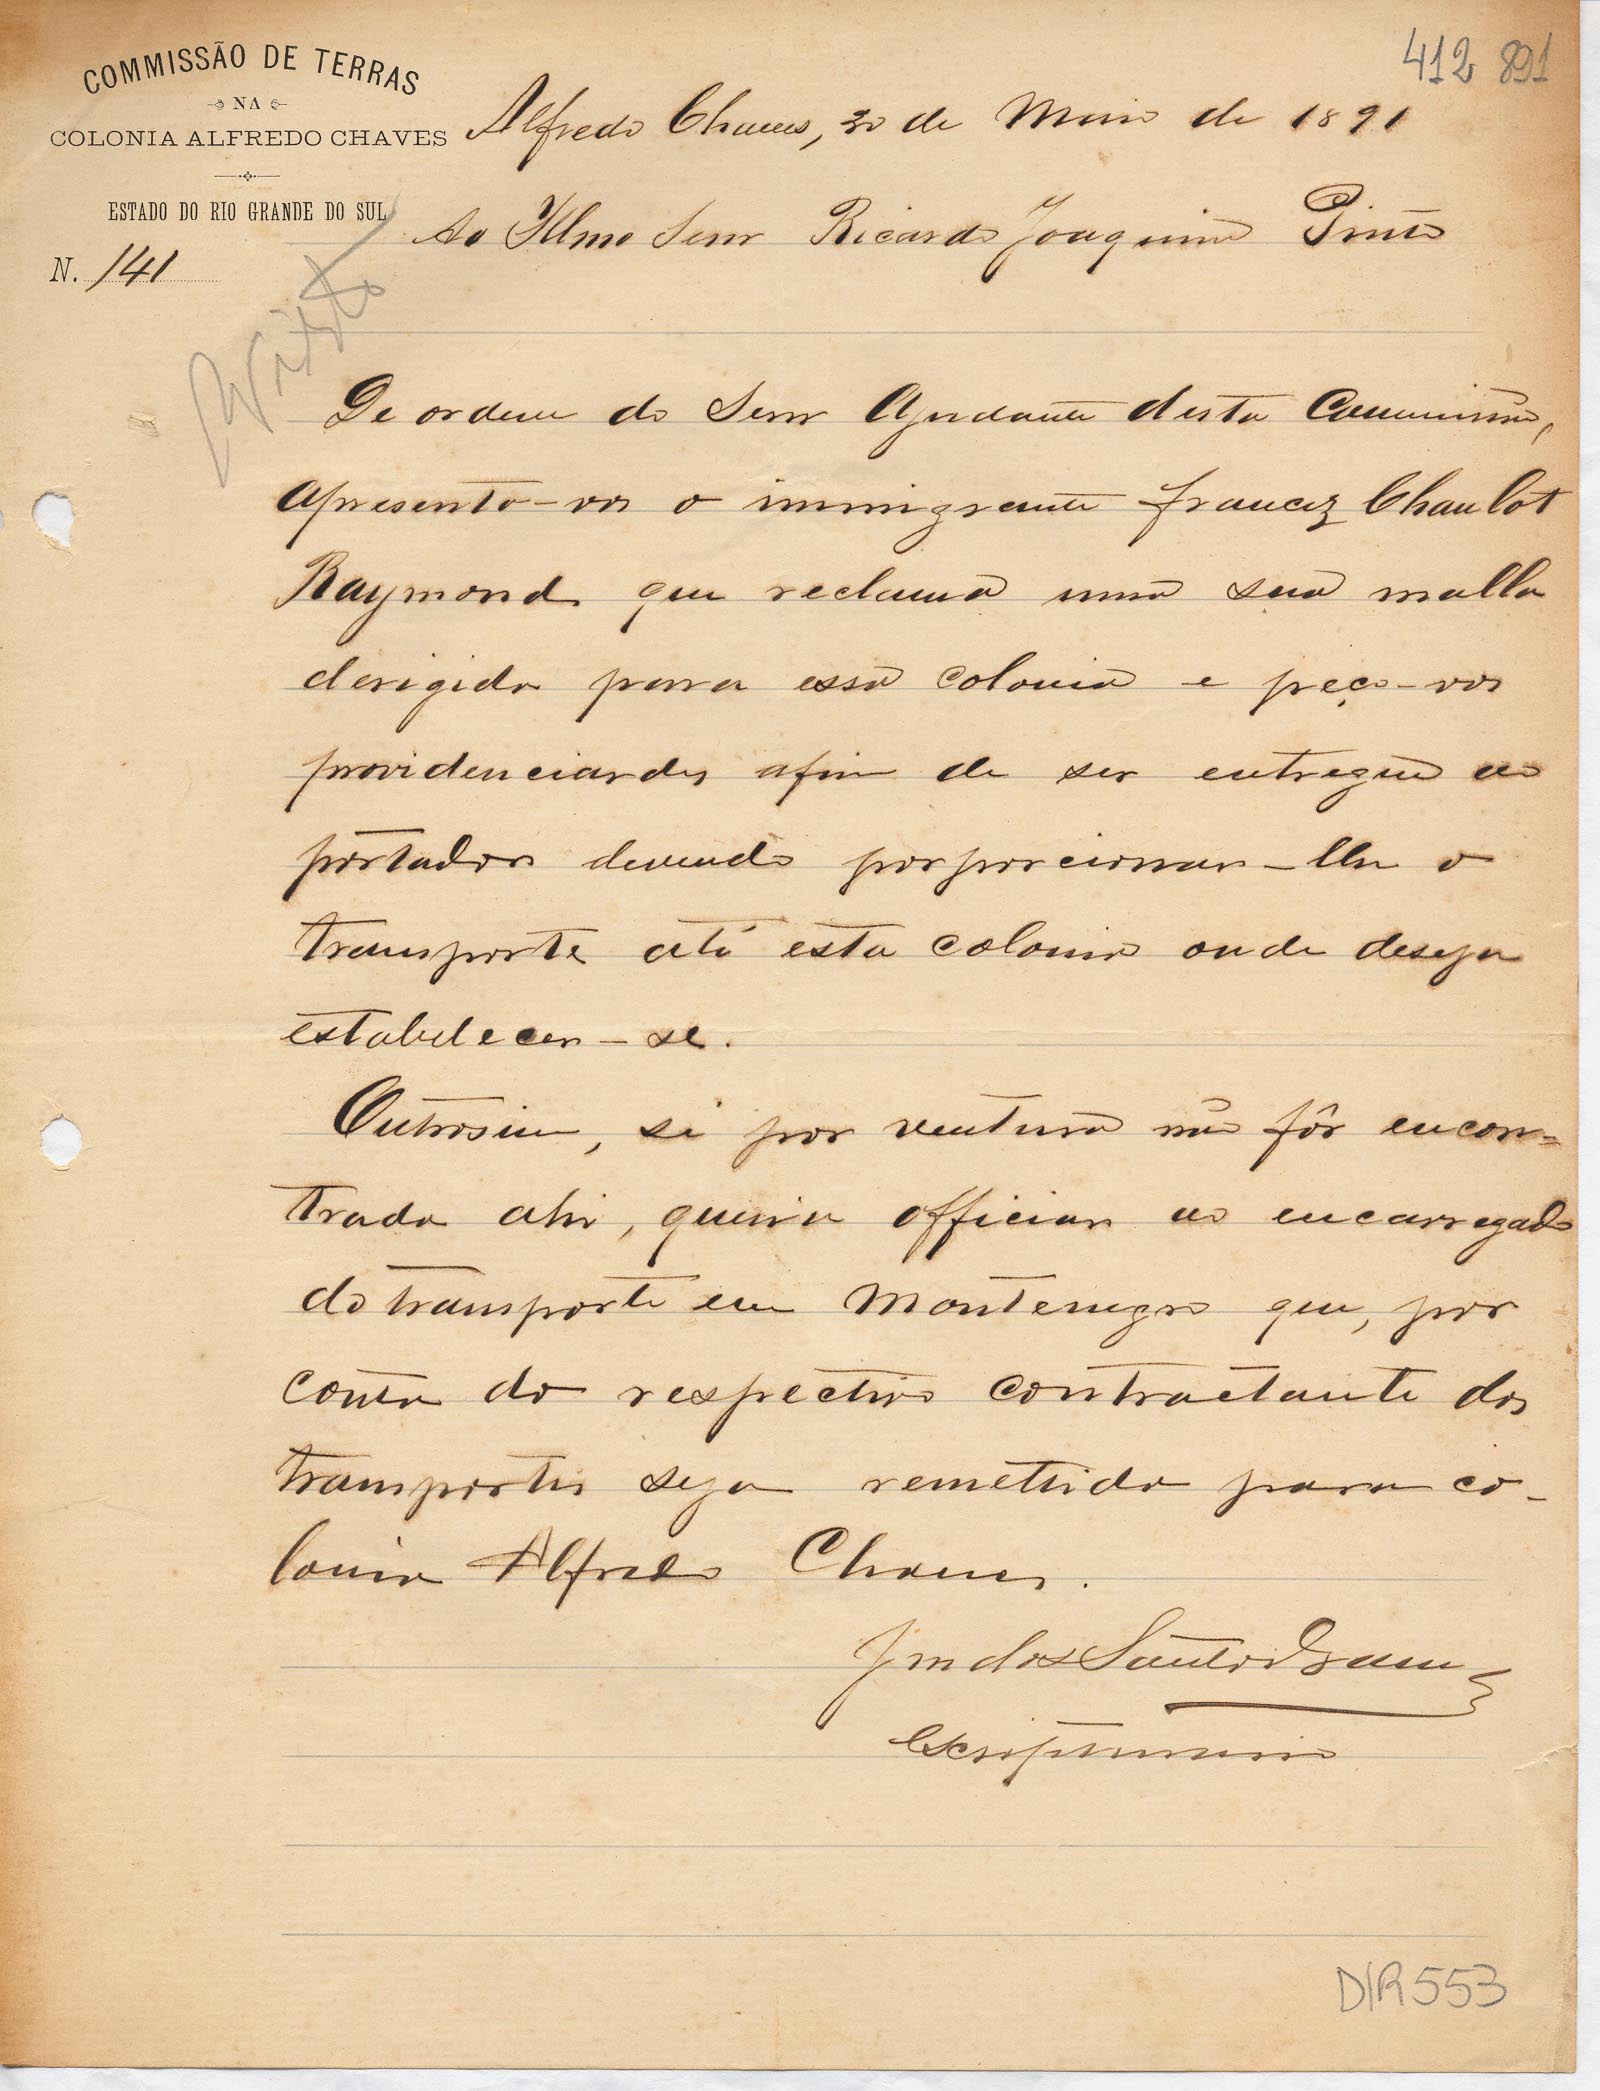 412 891
COMMISSÃO DE TERRAS
NA
COLONIA ALFREDO CHAVES
ESTADO DO RIO GRANDE DO SUL
N. 141
Alfredo Chaves, 30 de Maio de 1891
Ao Illmo Senr Ricardo Joaquim Pinto
Visto
De ordem do Senr Ajudante desta Commissão,
apresento-vos o immigrante francez Chaulot
Raymond que reclama uma sua malla
derigida para essa colonia e peço-vos
providenciardes afim de ser entregue ao
portador devendo porporcionar-lhe o
transporte até esta colonia onde deseja
estabelecer-se.
Outrosim, si por ventura não fôr encon=
trada ahi, queira officiar ao encarregado
do transporte em Montenegro que, por
conta do respectivo contractante dos
transportes seja remettida para co-
lonia Alfredo Chaves.
dos Santos
Escripturario
DIR553